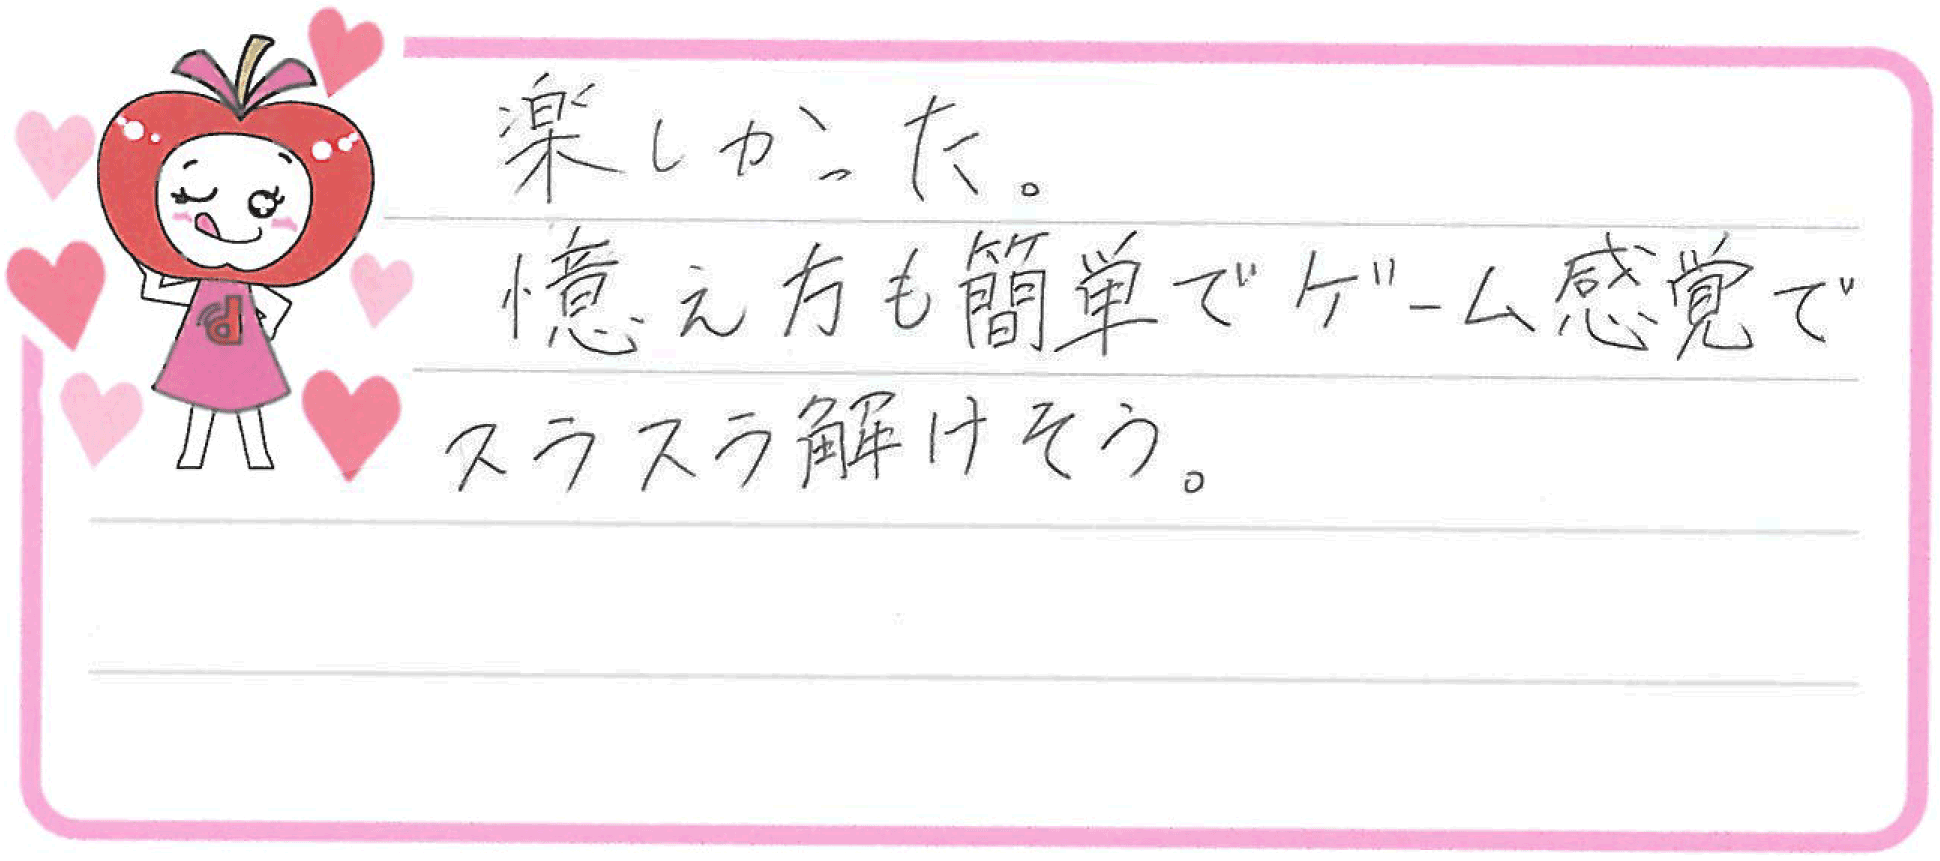 楽しかった。
憶え方も簡単でゲーム感覚で
スラスラ解けそう。